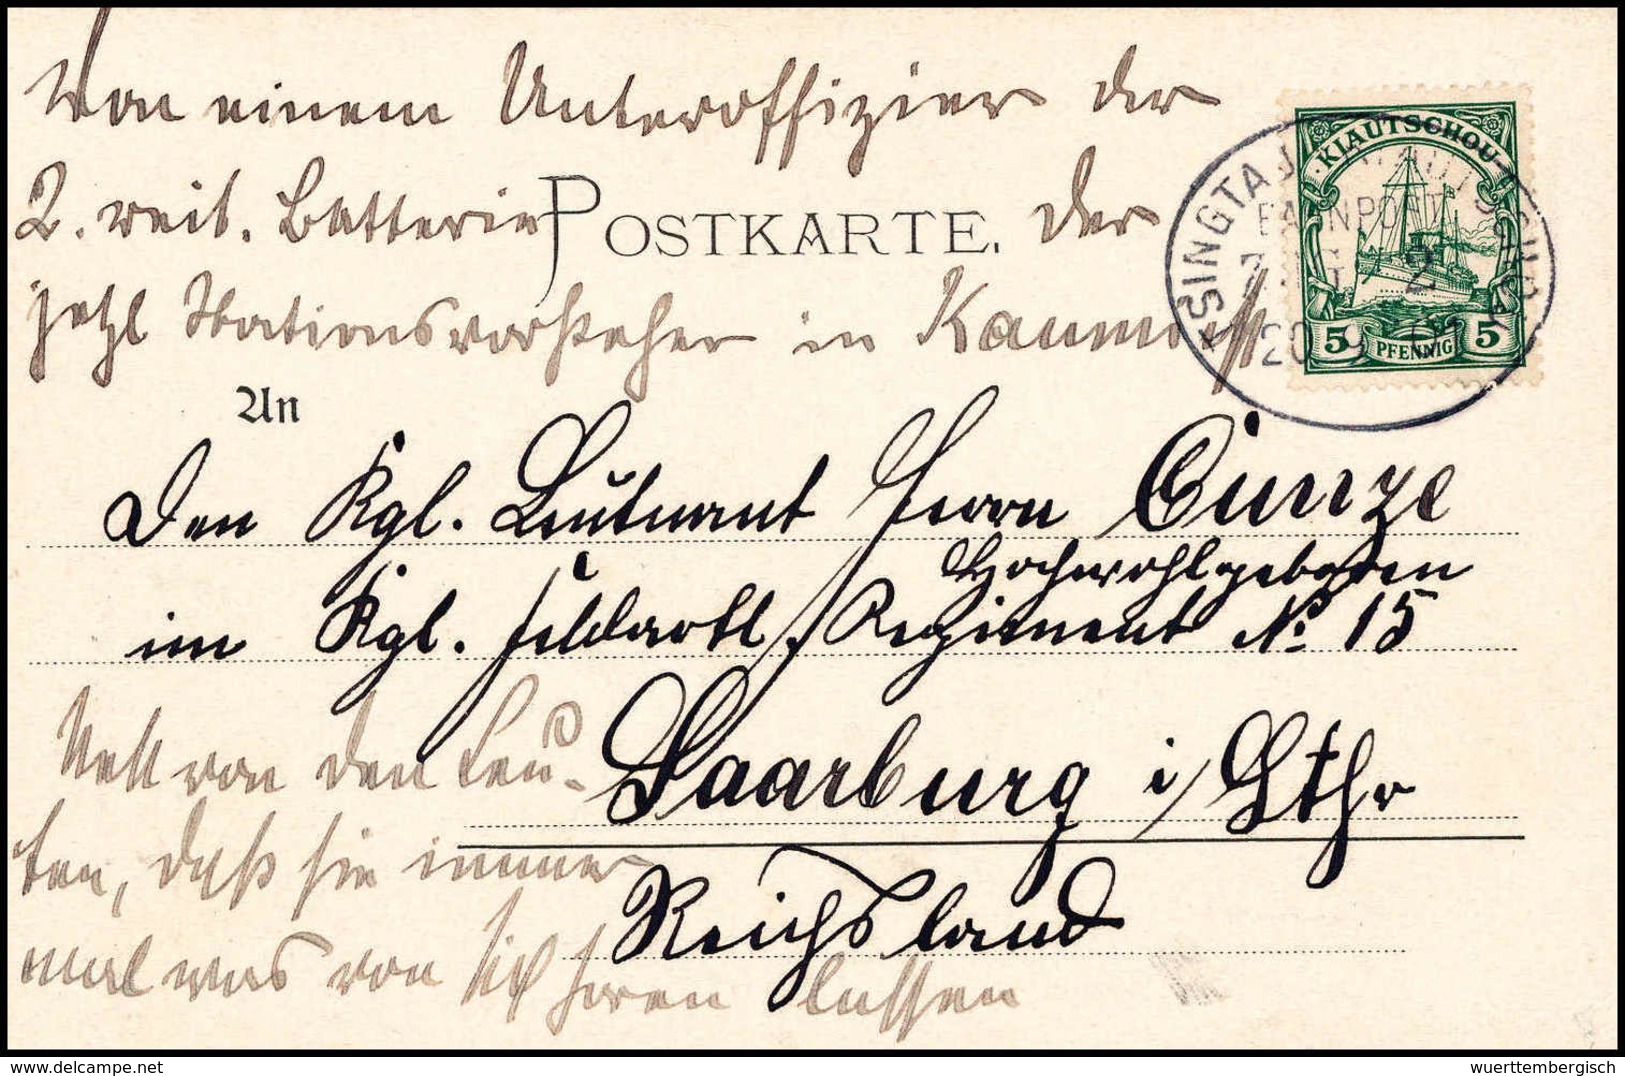 Von einem Unteroffizier der
2. reit. Batterie
POSTKARTE.
der
jetzt Stationsvorsteher in
KIAUTSCHOU
5 PFENNIG 5
TSINGTAU
BAHNPOST
ZUG 2
20
An
Den Kgl. Leutnant Herrn Cunze
Hochwohlgeboren
im Kgl. Feldartl. Regiment No 15
Saarburg i/ Lthr
Reichsland
Nett von den Leu-
ten, daß sie immer
mal was von sich hören lassen
wuerttembergisch